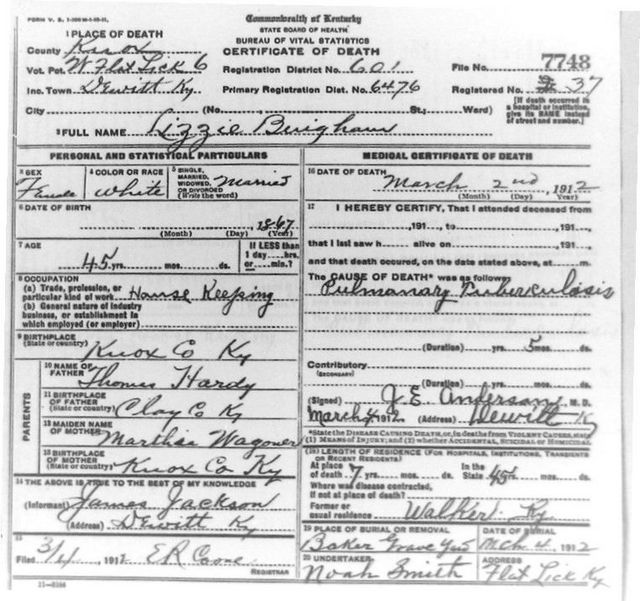 FORM V. S. 1-
Commonwealth of Kentucky
STATE BOARD OF HEALTH
BUREAU OF VITAL STATISTICS
CERTIFICATE OF DEATH
1 PLACE OF DEATH
County Knox
Vot. Pct. W Flat Lick 6
Inc. Town Dewitt Ky
Registration District No. 601
Primary Registration Dist. No. 6476
File No. 7748
Registered No. 37
[If death occurred in a hospital or institution, give its NAME instead of street and number.]
City (No. St.; Ward)
2 FULL NAME Lizzie Bingham
PERSONAL AND STATISTICAL PARTICULARS
3 SEX Female
4 COLOR OR RACE White
5 SINGLE, MARRIED, WIDOWED, OR DIVORCED (Write the word) Married
6 DATE OF BIRTH
1867
(Month) (Day) (Year)
7 AGE
45 yrs. mos. ds.
If LESS than 1 day hrs. or min.?
8 OCCUPATION
(a) Trade, profession, or particular kind of work House Keeping
(b) General nature of industry business, or establishment in which employed (or employer)
9 BIRTHPLACE
(State or country) Knox Co Ky
PARENTS
10 NAME OF FATHER Thomas Hardy
11 BIRTHPLACE OF FATHER
(State or country) Clay Co Ky
12 MAIDEN NAME OF MOTHER Martha Wagoner
13 BIRTHPLACE OF MOTHER
(State or country) Knox Co Ky
14 THE ABOVE IS TRUE TO THE BEST OF MY KNOWLEDGE
(Informant) James Jackson
(Address) Dewitt Ky
15
Filed 3/4, 1912 E R
REGISTRAR
11-3184
MEDICAL CERTIFICATE OF DEATH
16 DATE OF DEATH
March 2nd, 1912
(Month) (Day) (Year)
17 I HEREBY CERTIFY, That I attended deceased from
, 191 , to , 191 ,
that I last saw h alive on , 191 ,
and that death occured, on the date stated above, at m.
The CAUSE OF DEATH* was as follows:
Pulmonary Tuberkulosis
(Duration) yrs. 5 mos. ds.
Contributory
(SECONDARY)
(Duration) yrs. mos. ds.
(Signed) J. E. Anderson M. D.
March 4, 1912 (Address) Dewitt K
*State the DISEASE CAUSING DEATH, or, in deaths from VIOLENT CAUSES, state (1) MEANS OF INJURY; and (2) whether ACCIDENTAL, SUICIDAL or HOMICIDAL.
18 LENGTH OF RESIDENCE (FOR HOSPITALS, INSTITUTIONS, TRANSIENTS OR RECENT RESIDENTS)
At place of death 7 yrs. mos. ds. In the State 45 yrs. mos. ds.
Where was disease contracted, if not at place of death?
Former or usual residence Walker Ky
19 PLACE OF BURIAL OR REMOVAL
Baker Grave Yard
DATE OF BURIAL
Mch 4, 1912
20 UNDERTAKER
Noah Smith
ADDRESS
Flat Lick Ky